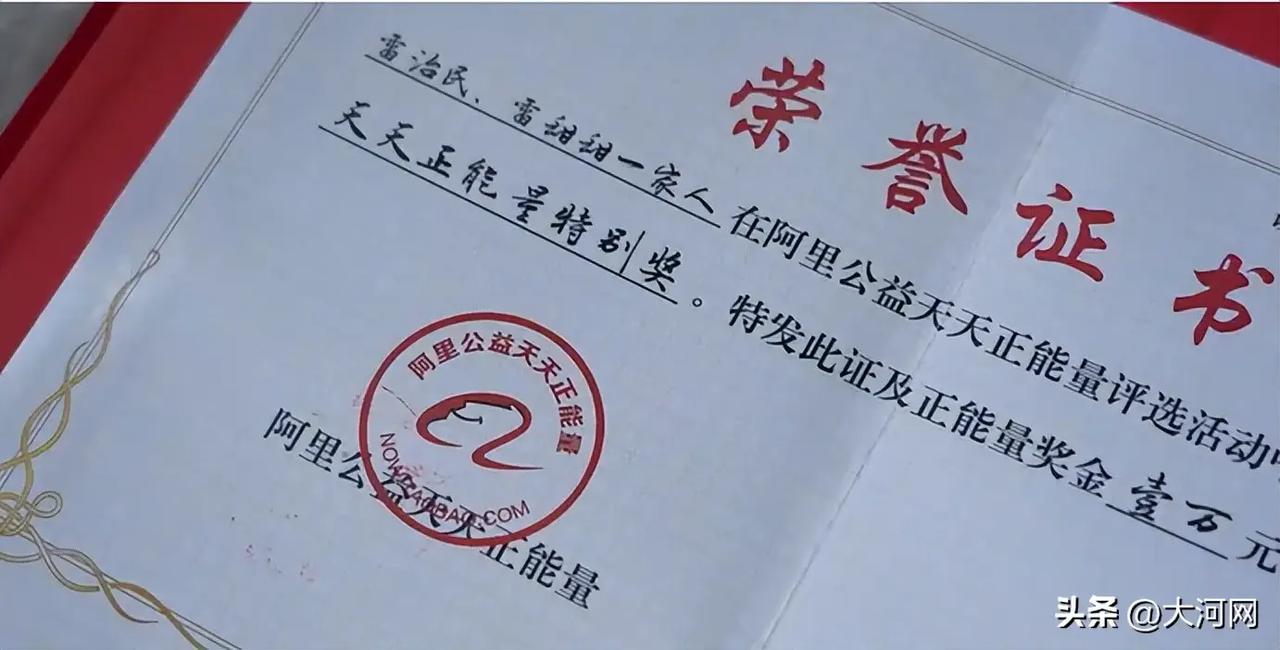 荣誉证书
雷治民、雷甜甜一家人在阿里公益天天正能量评选活动
天天正能量特别奖。特发此证及正能量奖金壹万元
阿里公益天天正能量
阿里公益天天正能量
NOW.TAOBAO.COM
头条 @大河网